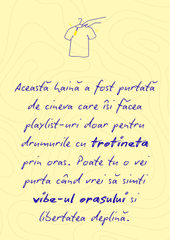 Această haină a fost purtată
de cineva care își făcea
playlist-uri doar pentru
drumurile cu trotineta
prin oraș. Poate tu o vei
purta când vrei să simți
vibe-ul orașului și
libertatea deplină.